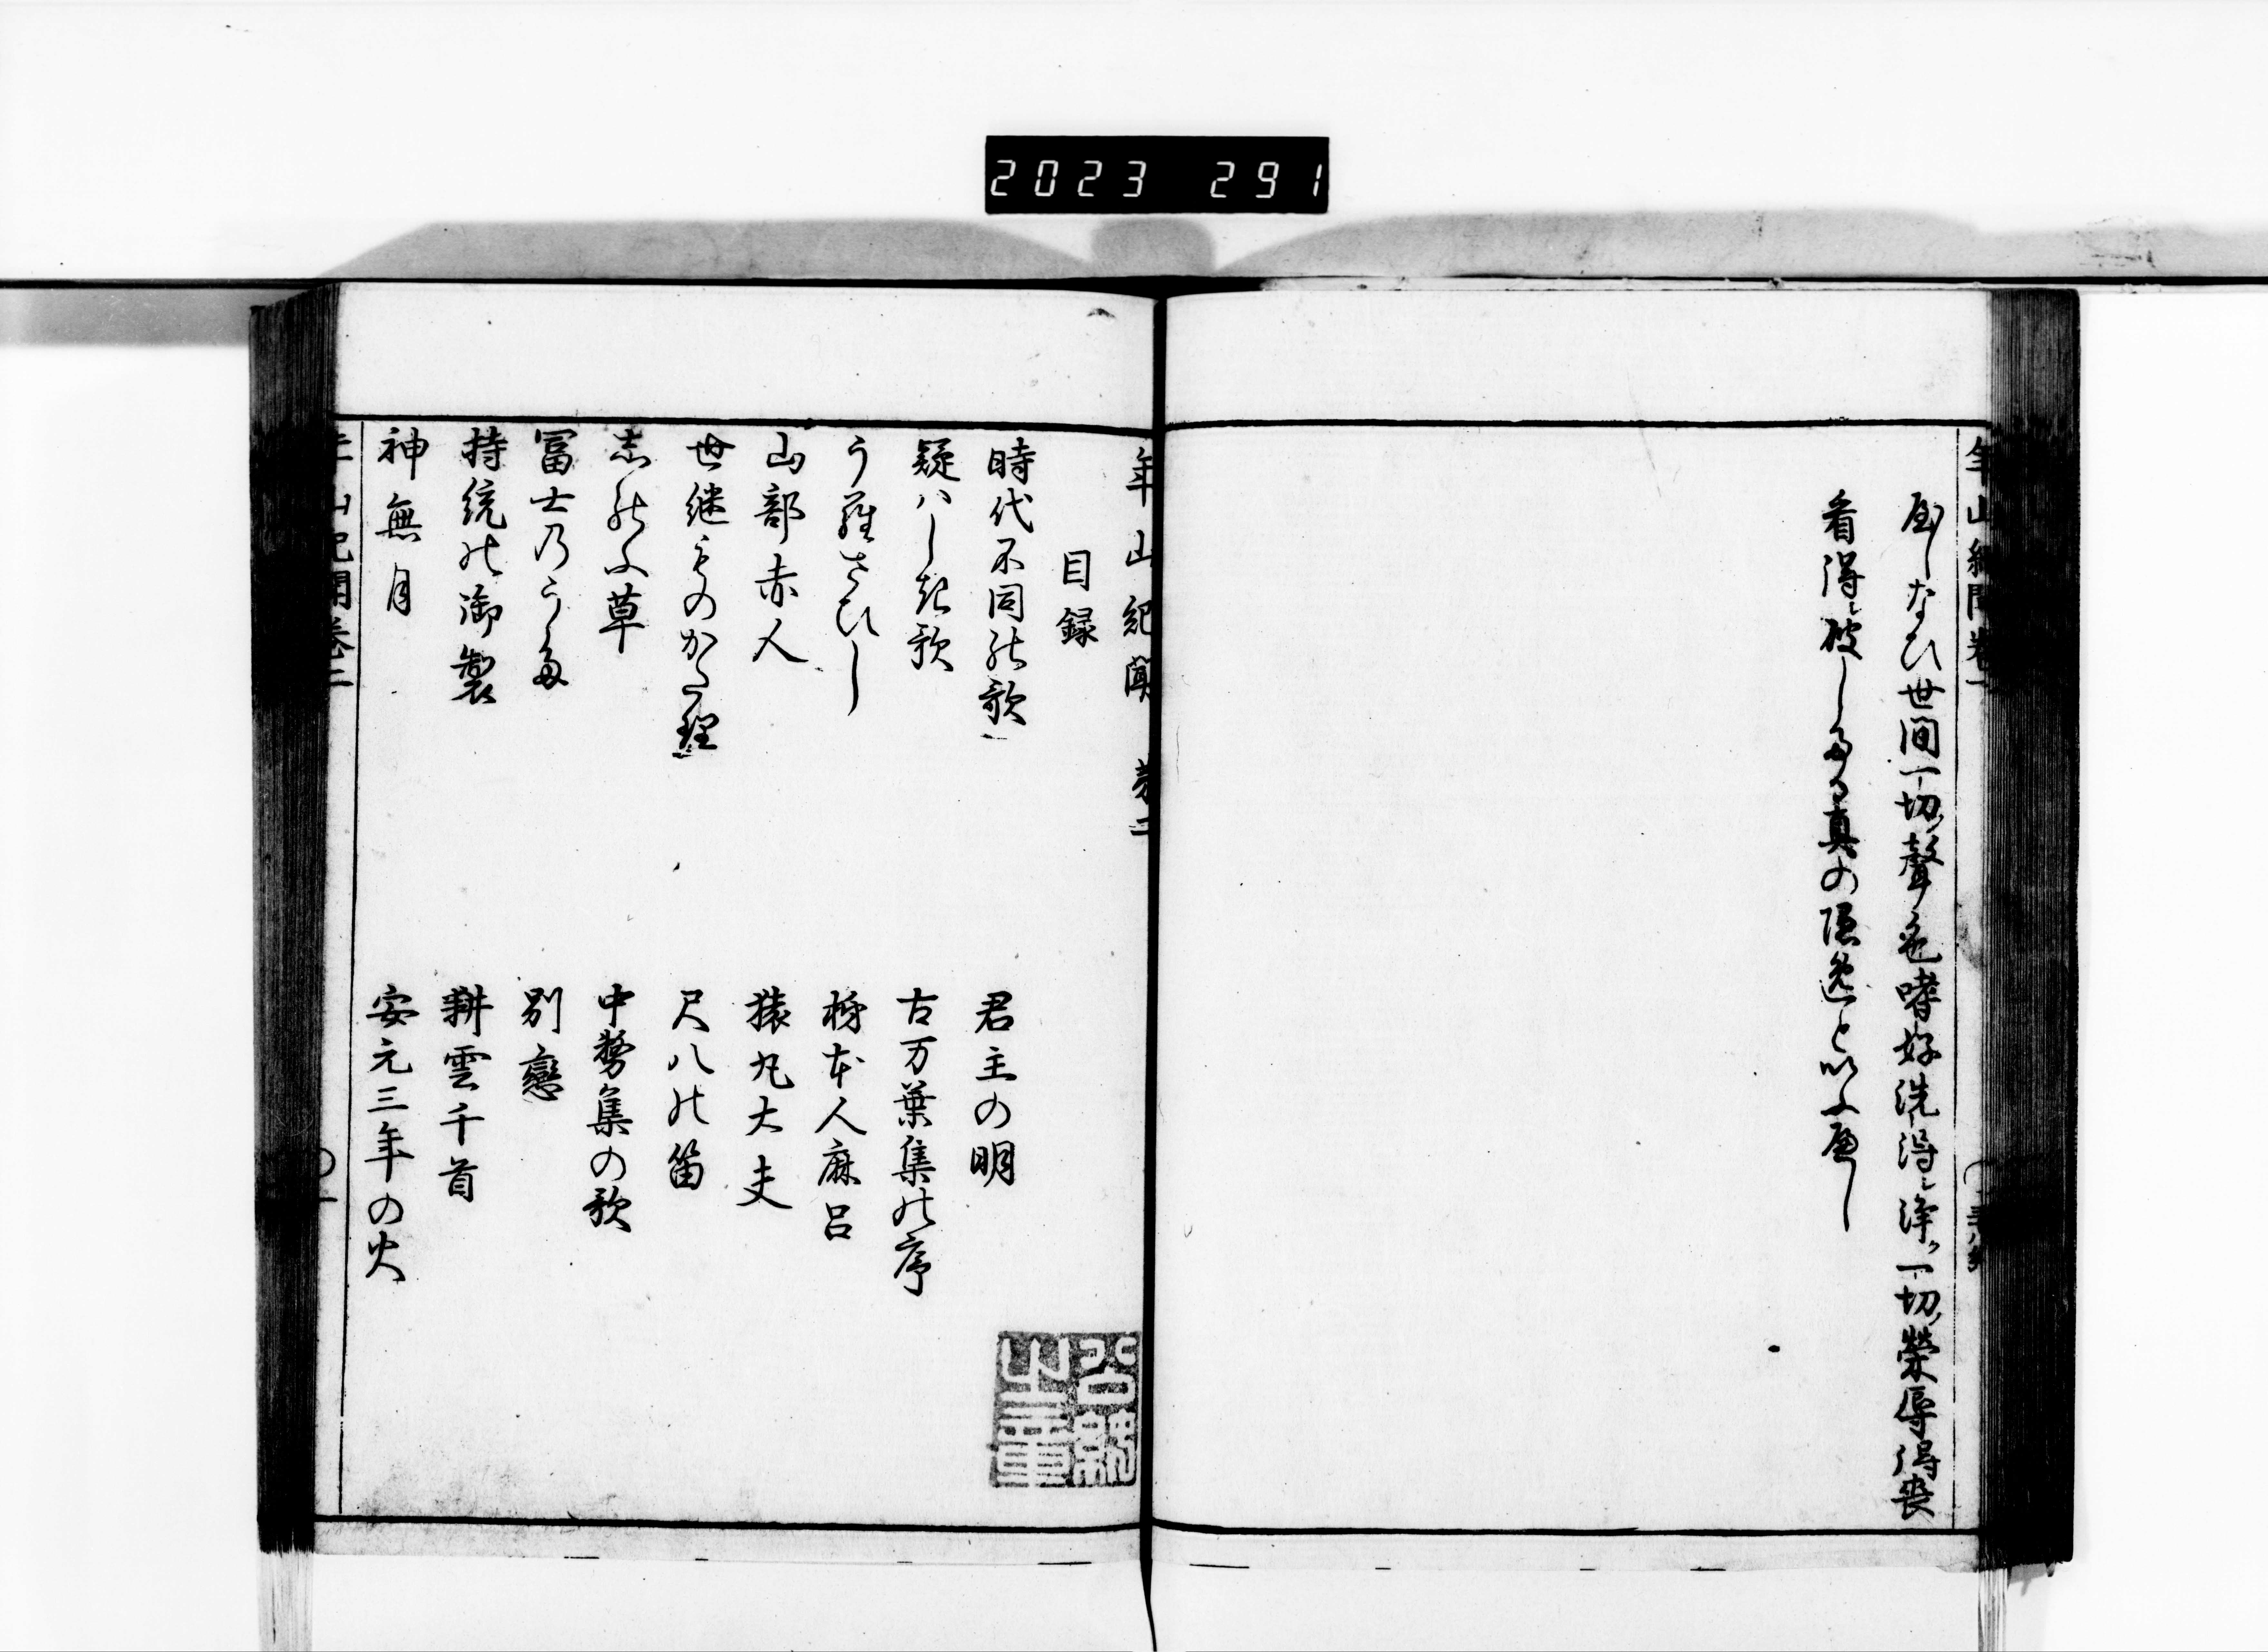 2023 291
年山紀聞巻一
屋しなひ世間一切聲色嗜好洗得淨一切榮辱得喪
看得破したる真の隠逸といふ屋し
年山紀聞 巻二
目録
時代不同能歌
君主の明
疑ハしき歌
古万葉集能序
う羅さひし
柿本人麻呂
山部赤人
猿丸大夫
世継ものかたり
尺八能笛
志能ふ草
中務集の歌
冨士乃うた
別戀
持統能御製
耕雲千首
神無月
安元三年の火
年山紀聞巻二